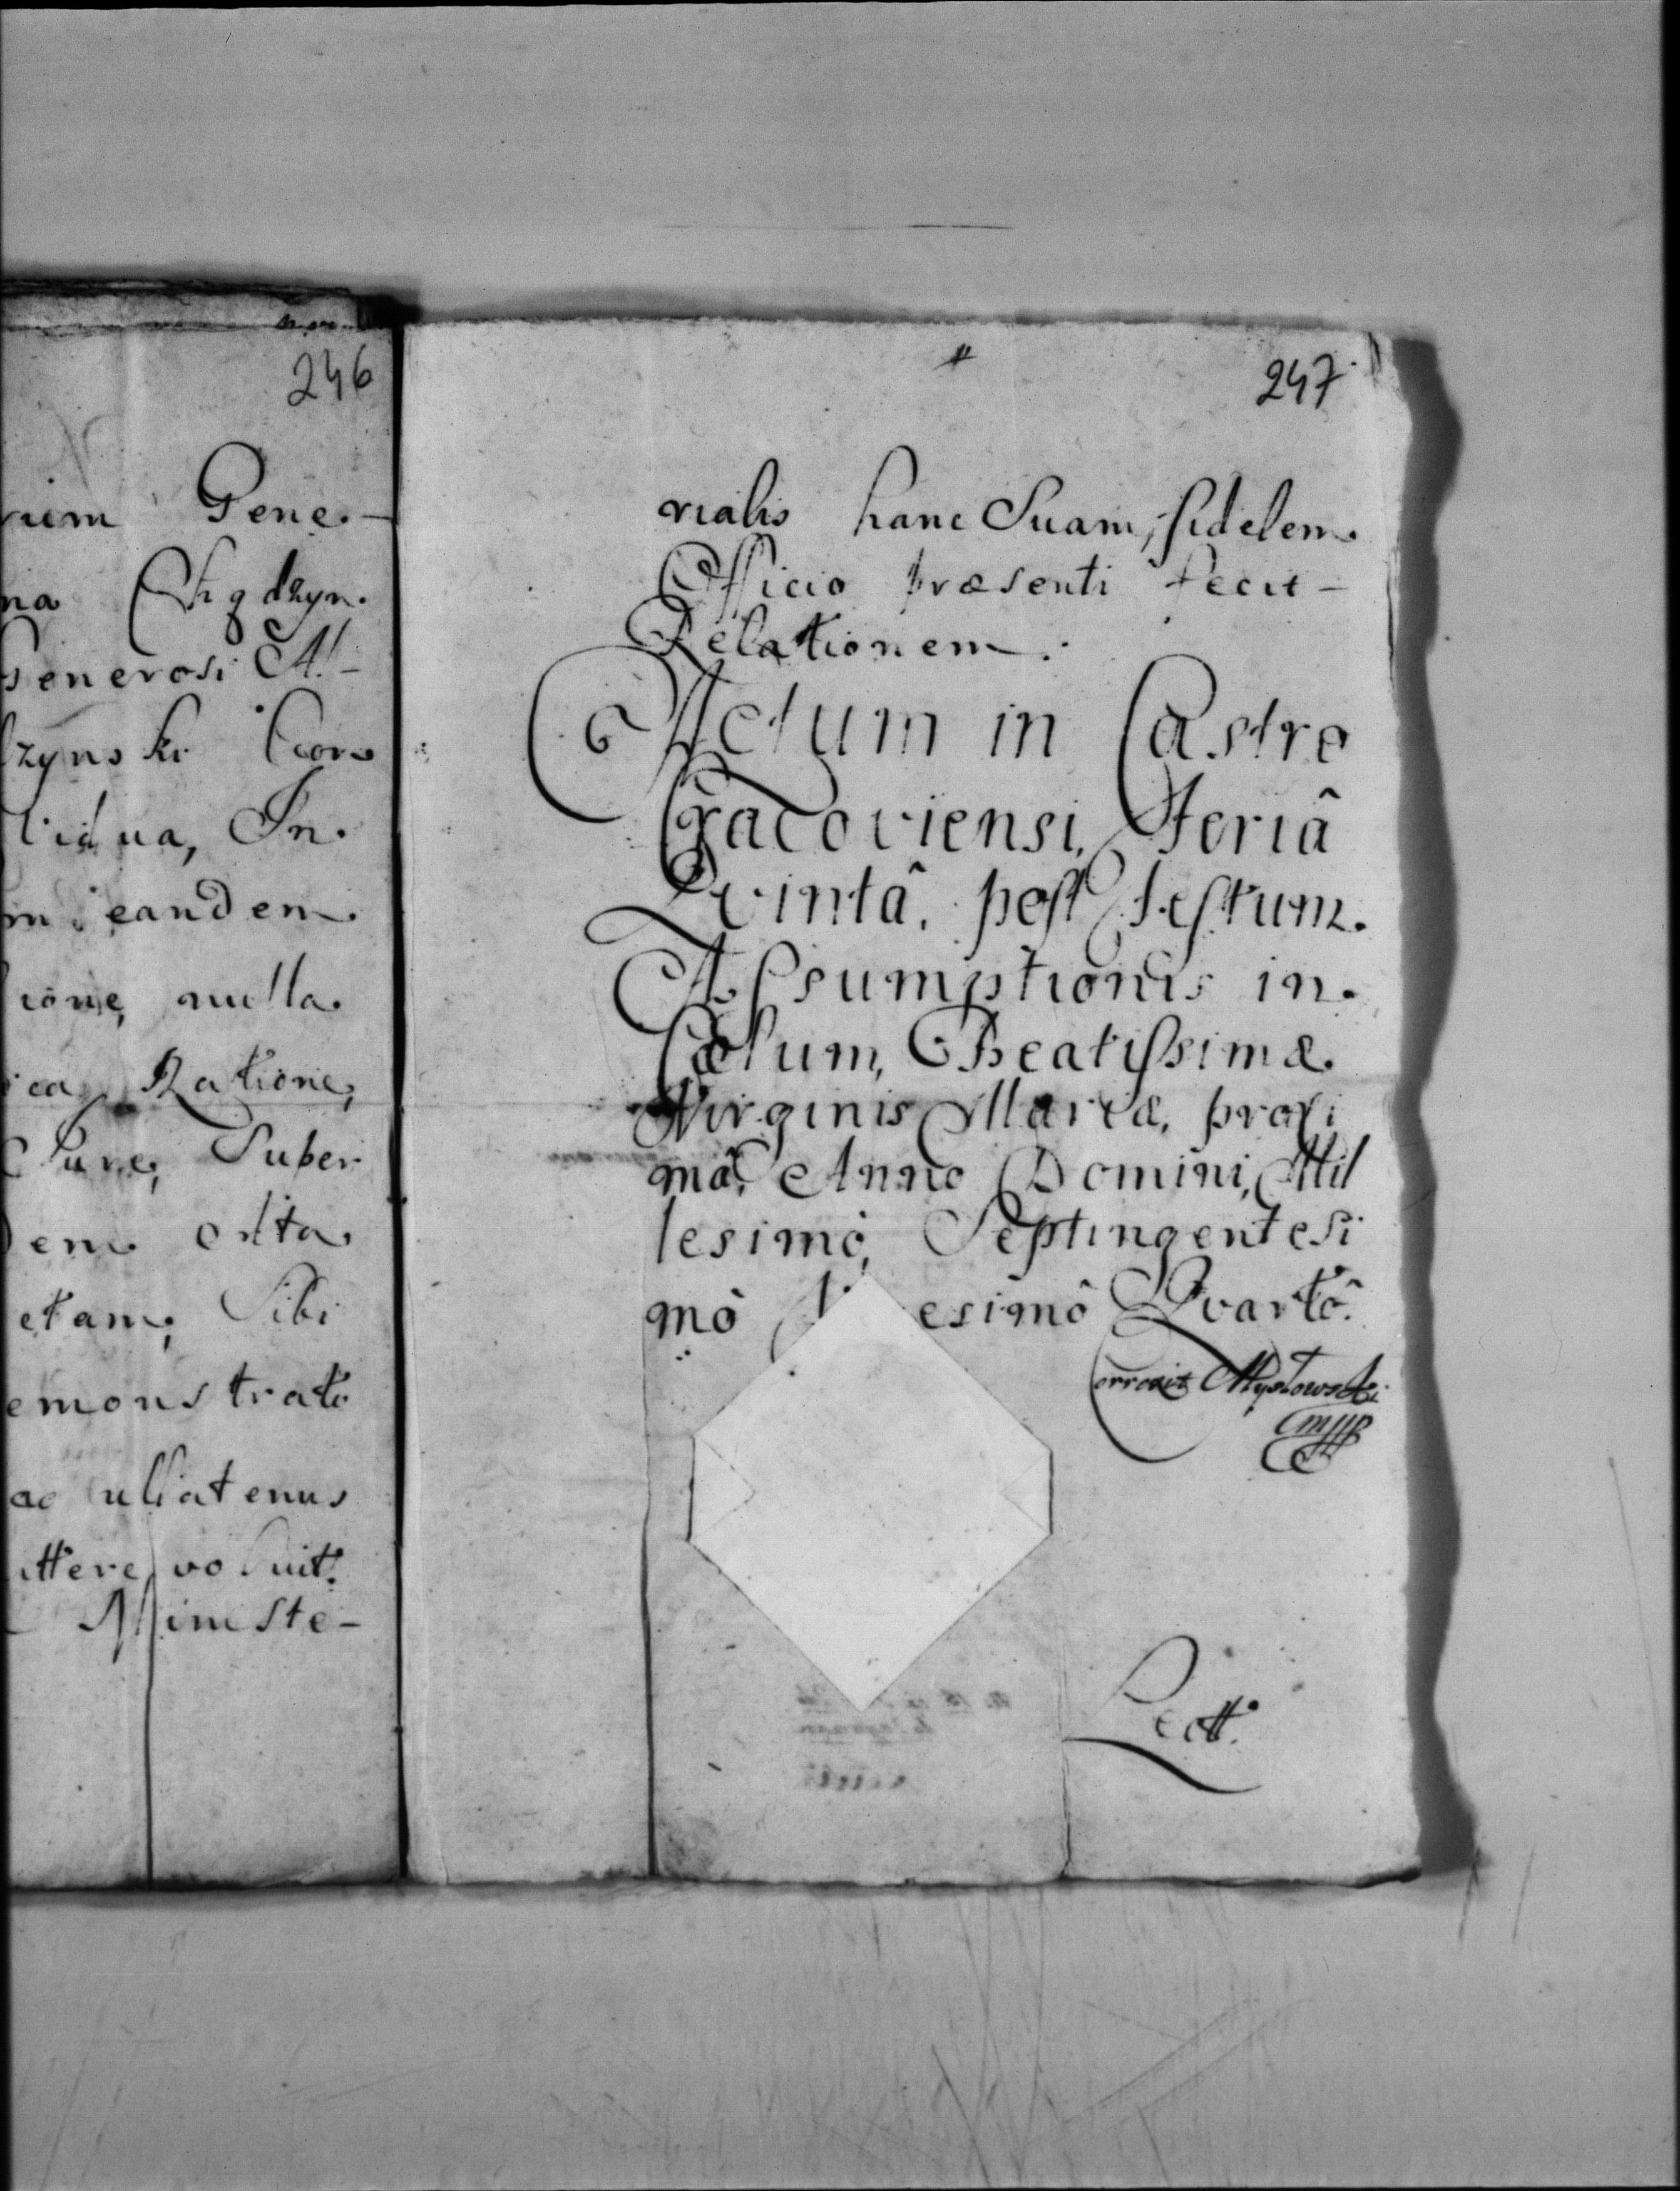 246
Gene-
Chądzyn.
Generosi Al-
zynski
vidua, In.
eandem.
nulla.
ea Ratione,
Jure, Super
orta
Sibi
emonstrato
ac ullatenus
ittere voluit.
Ministe-
247
rialis hanc Suam, fidelem.
Officio præsenti fecit-
Relationem.
Actum in Castro
Cracoviensi, Feriâ
Qvintâ, post Festum.
Assumptionis in.
Cœlum, Beatissimæ.
Virginis Mariæ, proxi
mâ, Anno Domini, Mil
lesimò, Septingentesi
mò esimô Qvartô.
Correxit Mysłowski
mpp
Lect.